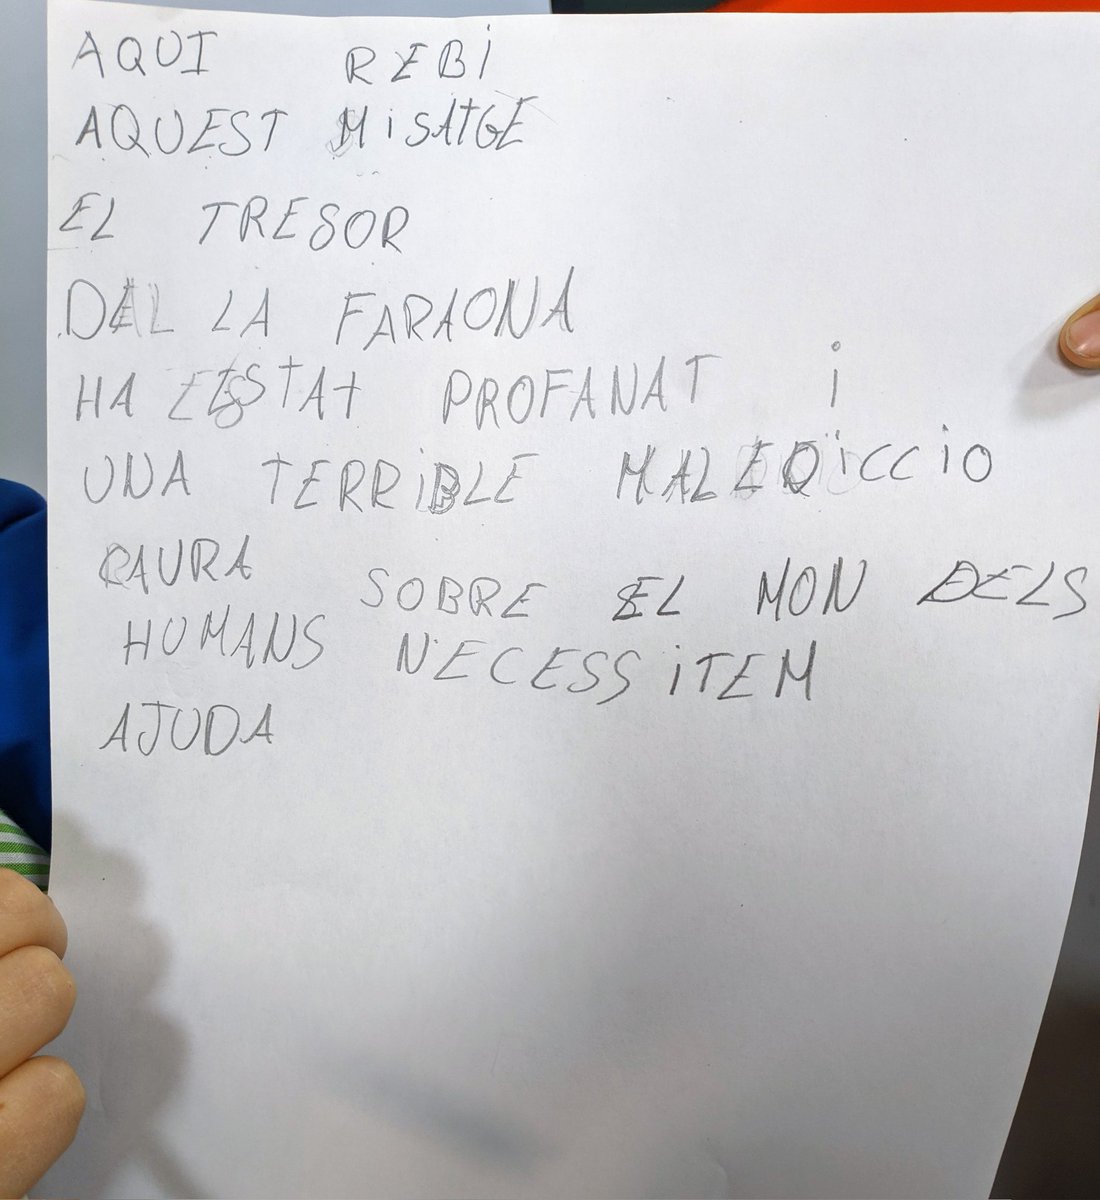 AQUI REBI
AQUEST MiSATGE
EL TRESOR
DEL LA FARAONA
HA ESTAT PROFANAT i
UNA TERRiBLE MALEDiCCiO
CAURA SOBRE EL MON DELS
HUMANS NECESSiTEM
AJUDA